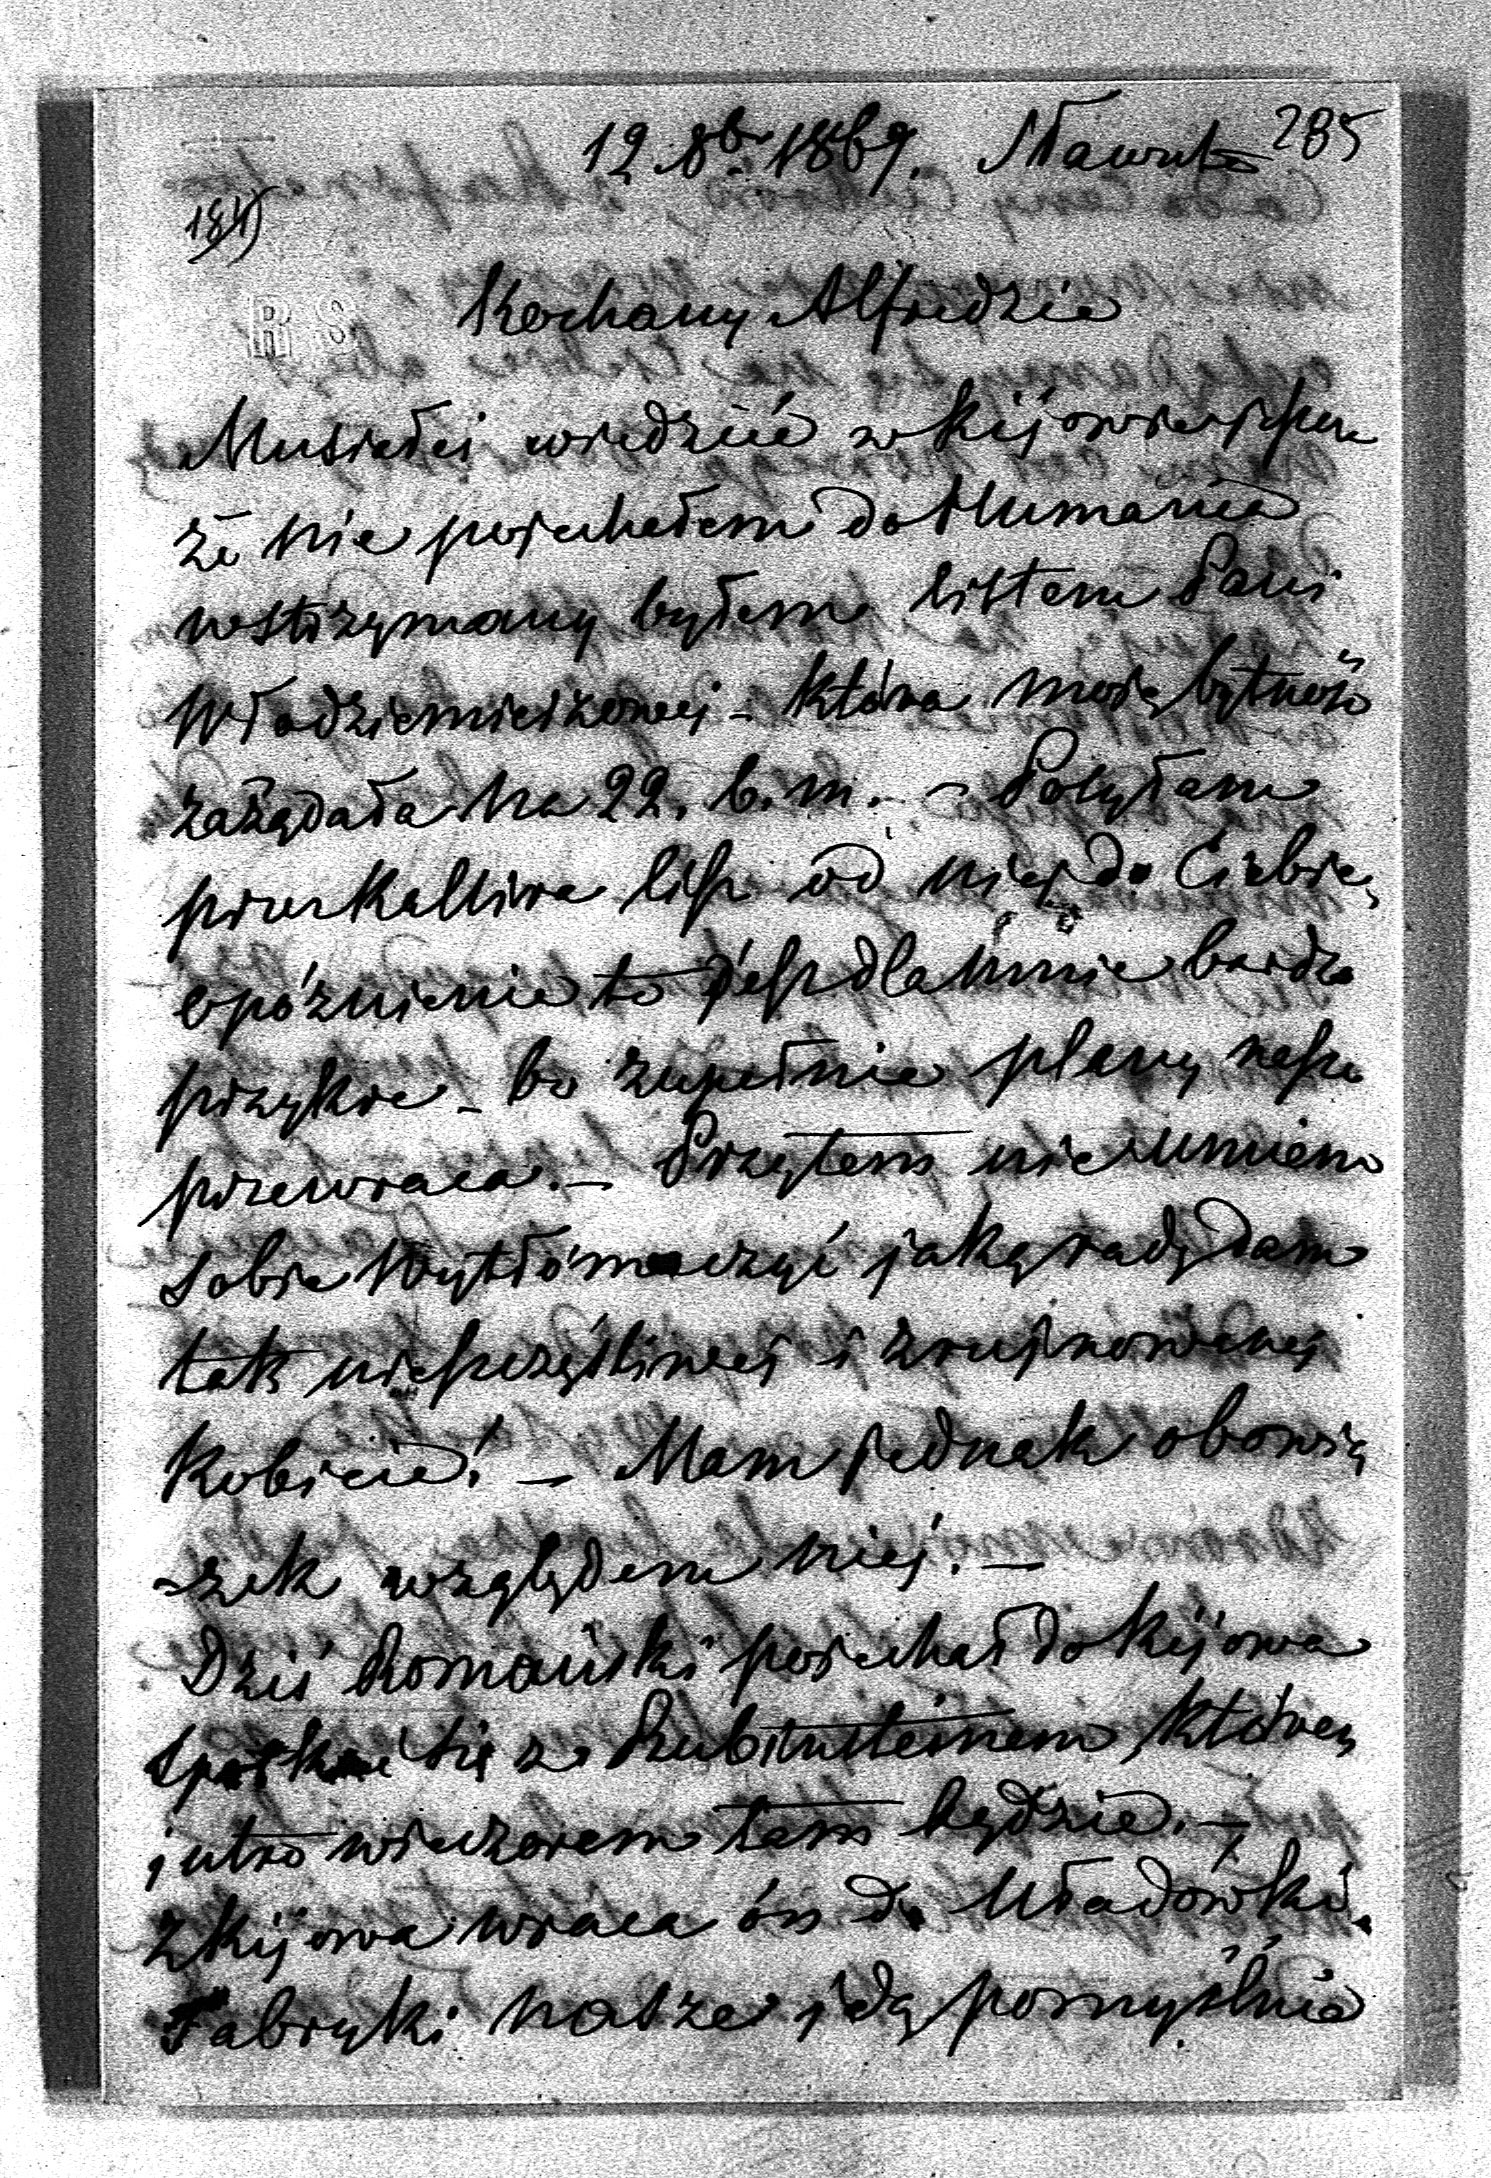 285
12 8br 1869. Sławuta
184)
RS
Kochany Alfredzie
Musiałeś wiedzieć w Kijowie jeszcze
że nie pojechałem do Humania
wstrzymany byłem listem Pani
Włodzimierzowej – która moją bytność
zażądała na 22. b. m. – Posyłam
przez Kaliksta list od niej do Ciebie,
opóźnienie to jest dla mnie bardzo
przykre – bo zupełnie plany nasze
przewraca. – Przytem nie umiem
sobie wytłómaczyć jaką radę dam
tak nieszczęśliwej i zrujnowanej
kobiecie! – Mam jednak obowią
-zek względem niej. –
Dziś Romański pojechał do Kijowa
spotkać się z Rubinsteinem, który
jutro wieczorem tam będzie. –
z Kijowa wraca on do Uładówki.
Fabryki nasze idą pomyślnie